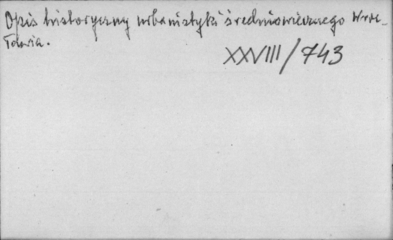 Opis historyczny urbanistyki średniowiecznego Wroc-
ławia.
XXVIII/743